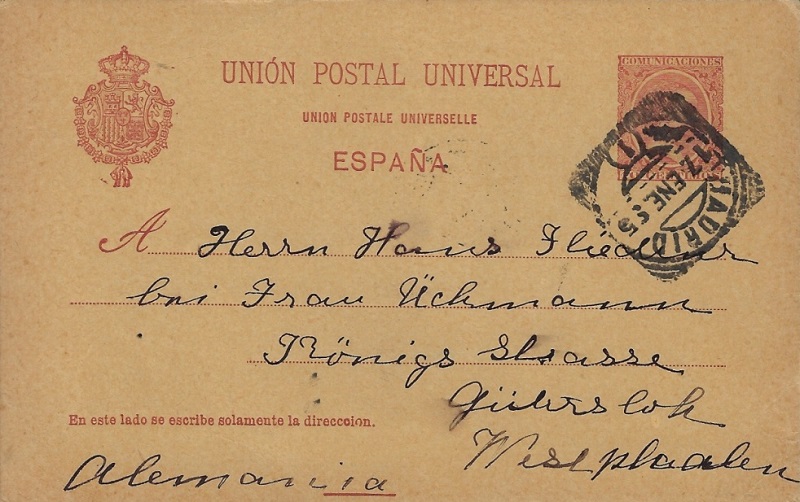 COMUNICACIONES
UNIÓN POSTAL UNIVERSAL
UNION POSTALE UNIVERSELLE
ESPAÑA
MADRID
ENE
A Herrn Hans Fliedner
bei Frau Ückmann
Königs Strasse
Gütersloh
Westphaalen
En este lado se escribe solamente la direccion.
Alemania